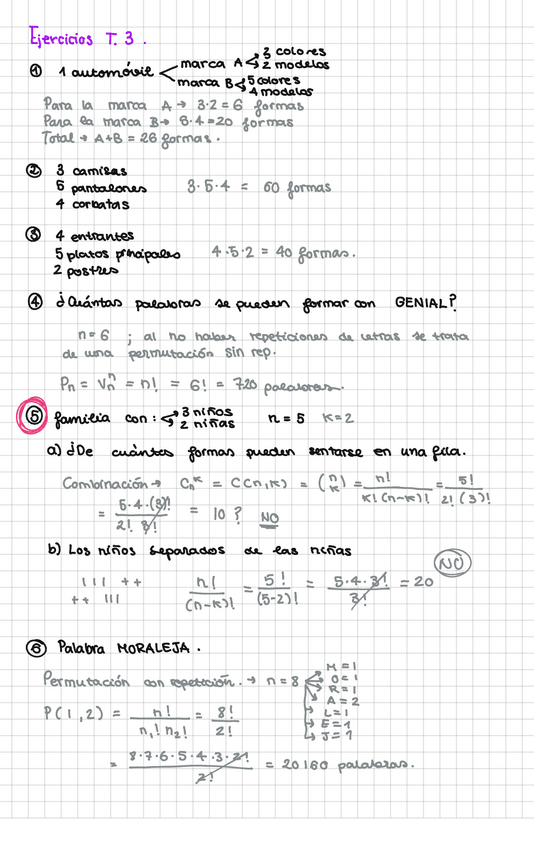 Ejercicios T. 3.
① 1 automóvil < marca A < 3 colores
2 modelos
marca B < 5 colores
4 modelos
Para la marca A → 3·2 = 6 formas
Para la marca B → 5·4 = 20 formas
Total → A+B = 26 formas.
② 3 camisas
5 pantalones 3·5·4 = 60 formas
4 corbatas
③ 4 entrantes
5 platos principales 4·5·2 = 40 formas.
2 postres
④ ¿Cuántas palabras se pueden formar con GENIAL?
n = 6 ; al no haber repeticiones de letras se trata
de una permutación sin rep.
Pn = Vnn = n! = 6! = 720 palabras.
⑤ familia con: < 3 niños
2 niñas n = 5 K = 2
a) ¿De cuántas formas pueden sentarse en una fila.
Combinación → CnK = C(n,K) = (n K) = n! / K! (n-K)! = 5! / 2! (3)!
= 5·4·(3)! / 2! 3! = 10 ? NO
b) Los niños separados de las niñas NO
III ++
++ III n! / (n-K)! = 5! / (5-2)! = 5·4·3! / 3! = 20
⑥ Palabra MORALEJA.
Permutación con repetición. → n = 8
M = 1
O = 1
R = 1
A = 2
L = 1
E = 1
J = 1
P(1,2) = n! / n1! n2! = 8! / 2!
= 8·7·6·5·4·3·2! / 2! = 20160 palabras.